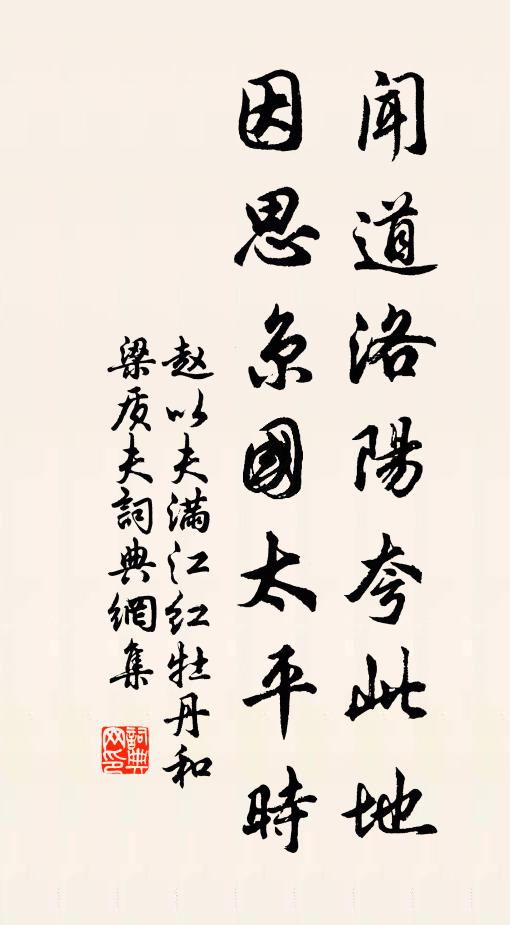 闻道洛陽夸此地
因思京國太平時
赵以夫满江红牡丹和
梁质夫詞典網集
詞典网印